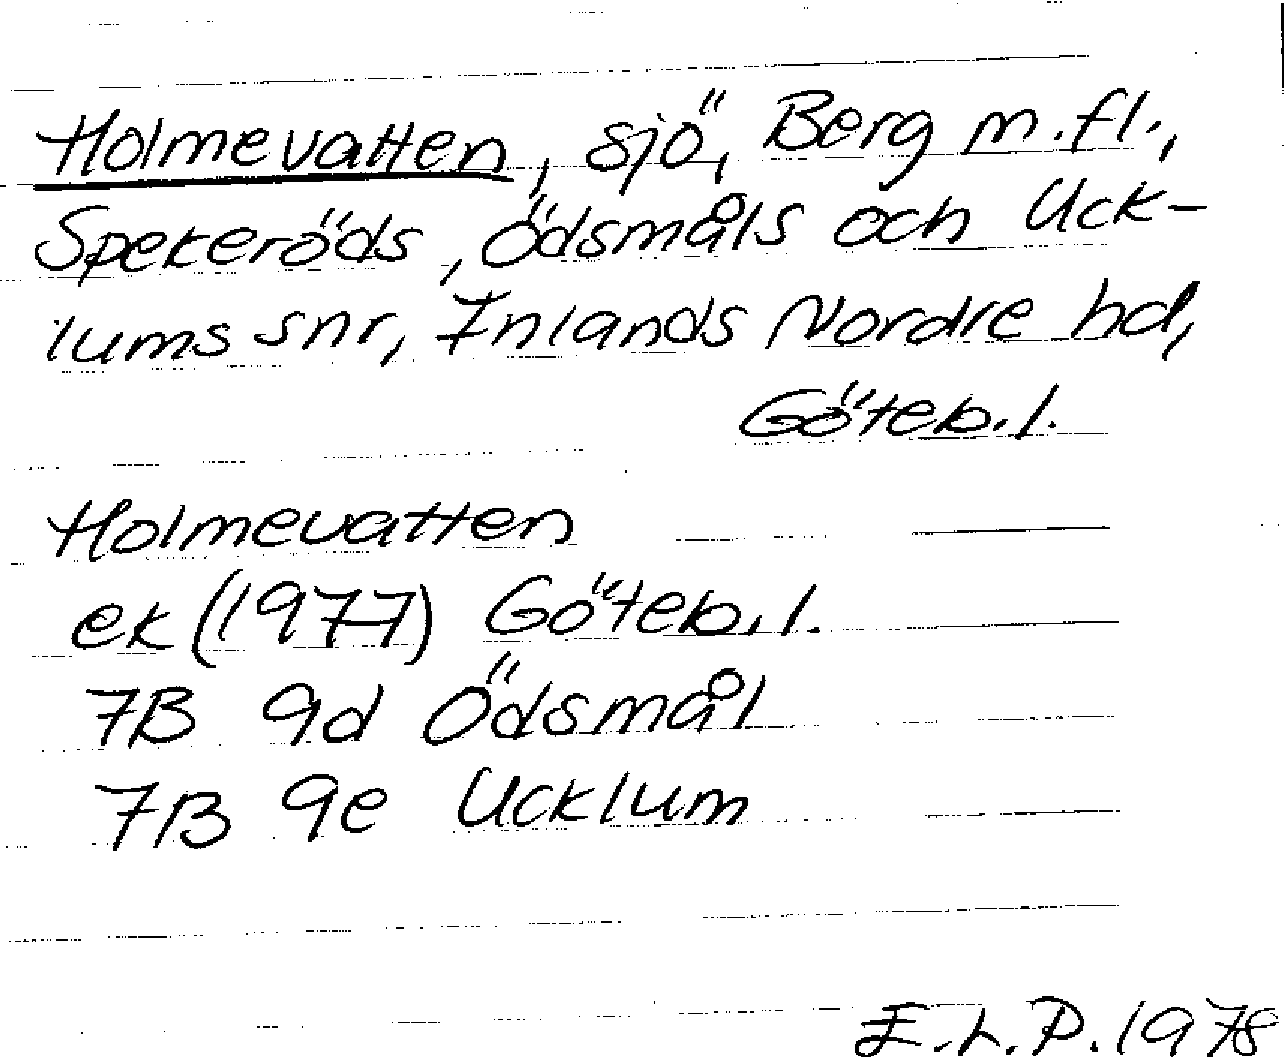 Holmevatten, sjö, Berg m.fl.,
Spekeröds, Ödsmåls och Uck-
lums snr, Inlands Nordre hd,
Göteb.l.
Holmevatten
ek (1977) Göteb.l.
7B 9d Ödsmål
7B 9e Ucklum
E.L.P. 1978